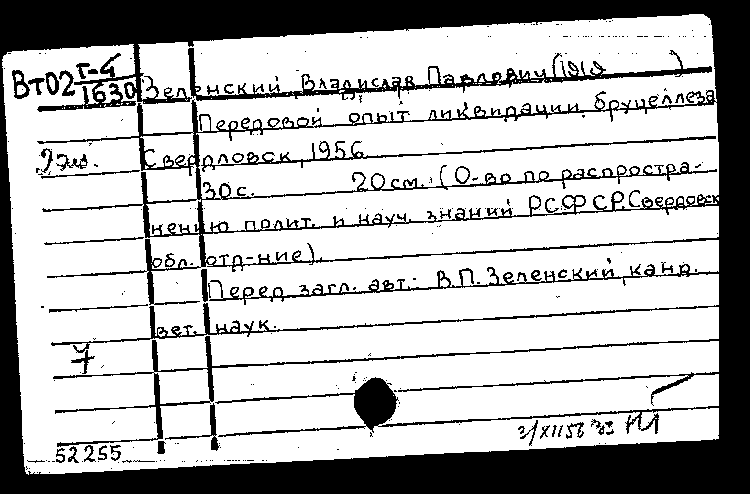 Вт02 Г-4/1630 Зеленский, Владислав Павлович (1919 )
Передовой опыт ликвидации бруцеллеза
2 экз. Свердловск, 1956
30 с. 20 см. (О-во по распростра-
нению полит. и науч. знаний РСФСР. Свердловск
обл. отд-ние).
Перед загл. авт.: В.П. Зеленский, канд.
вет. наук.
7
52255